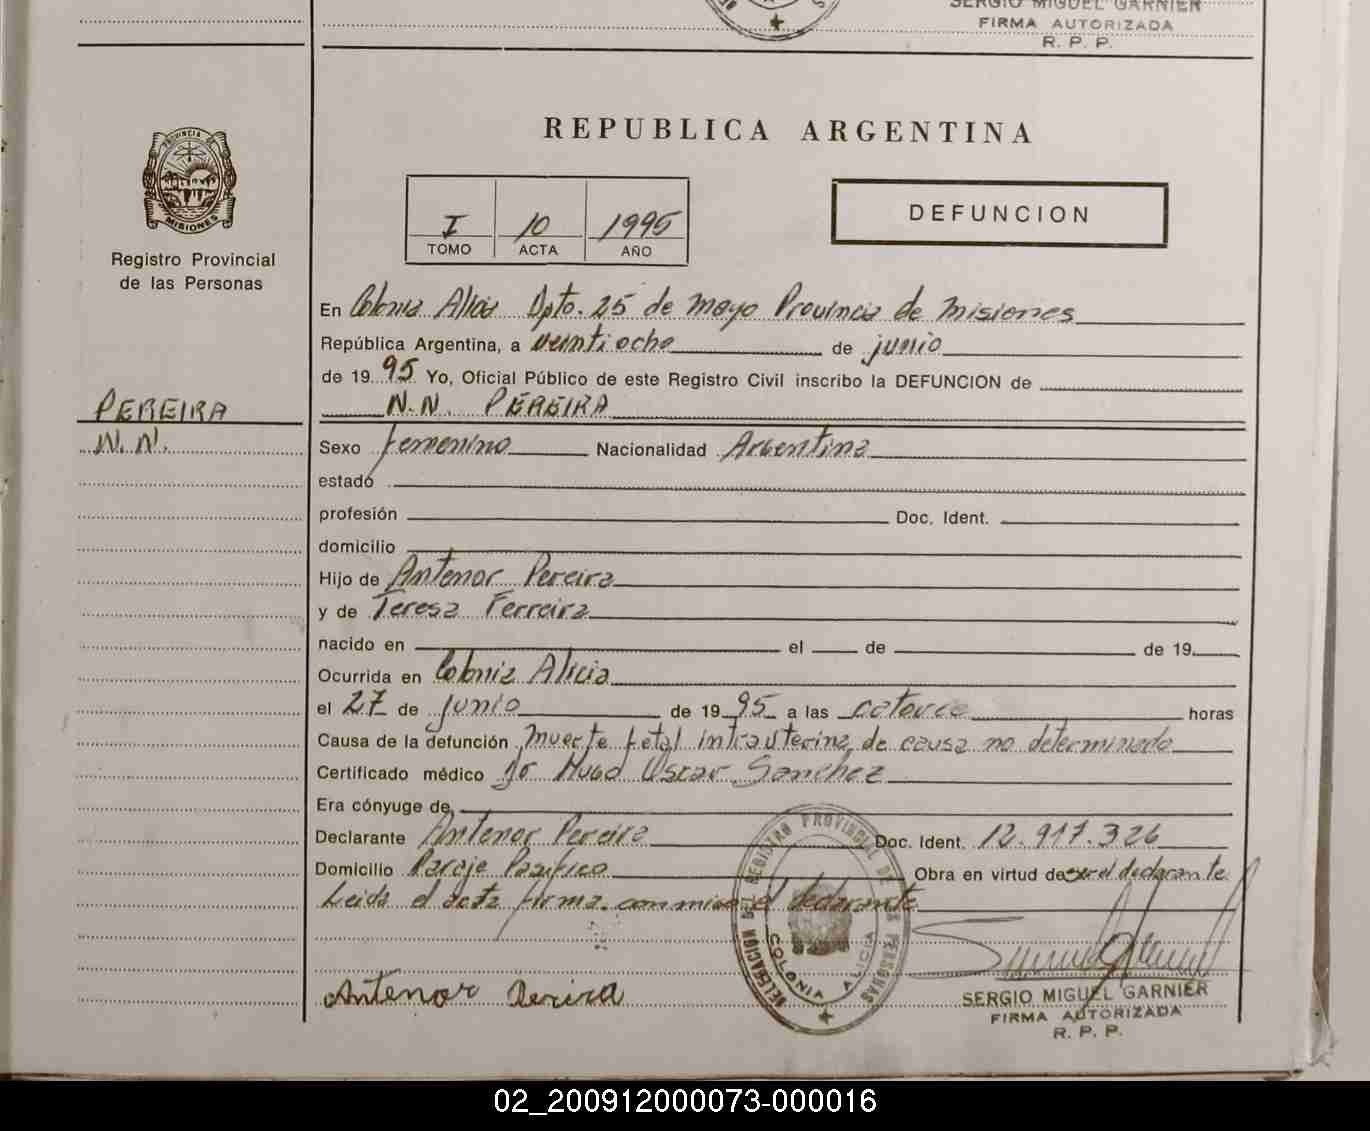 SERGIO MIGUEL GARNIER
FIRMA AUTORIZADA
R. P. P.
PROVINCIA DE
MISIONES
Registro Provincial
de las Personas
PEREIRA
N.N.
REPUBLICA ARGENTINA
I 10 1995
TOMO ACTA AÑO
DEFUNCION
En Colonia Alicia Dpto. 25 de Mayo Provincia de Misiones
República Argentina, a veintiocho de junio
de 19 95 Yo, Oficial Público de este Registro Civil inscribo la DEFUNCION de
N.N. PEREIRA
Sexo femenino Nacionalidad Argentina
estado
profesión Doc. Ident.
domicilio
Hijo de Antenor Pereira
y de Teresa Ferreira
nacido en el de de 19
Ocurrida en Colonia Alicia
el 27 de junio de 19 95 a las catorce horas
Causa de la defunción muerte fetal intrauterina de causa no determinada
Certificado médico Dr Hugo Oscar Sanchez
Era cónyuge de
Declarante Antenor Pereira Doc. Ident. 12.917.326
Domicilio Paraje Pacifico Obra en virtud de ser el declarante
Leida el acta firma conmigo el declarante
DELEGACION DEL REGISTRO PROVINCIAL DE LAS PERSONAS
COLONIA ALICIA
Antenor Pereira
SERGIO MIGUEL GARNIER
FIRMA AUTORIZADA
R. P. P.
02_200912000073-000016